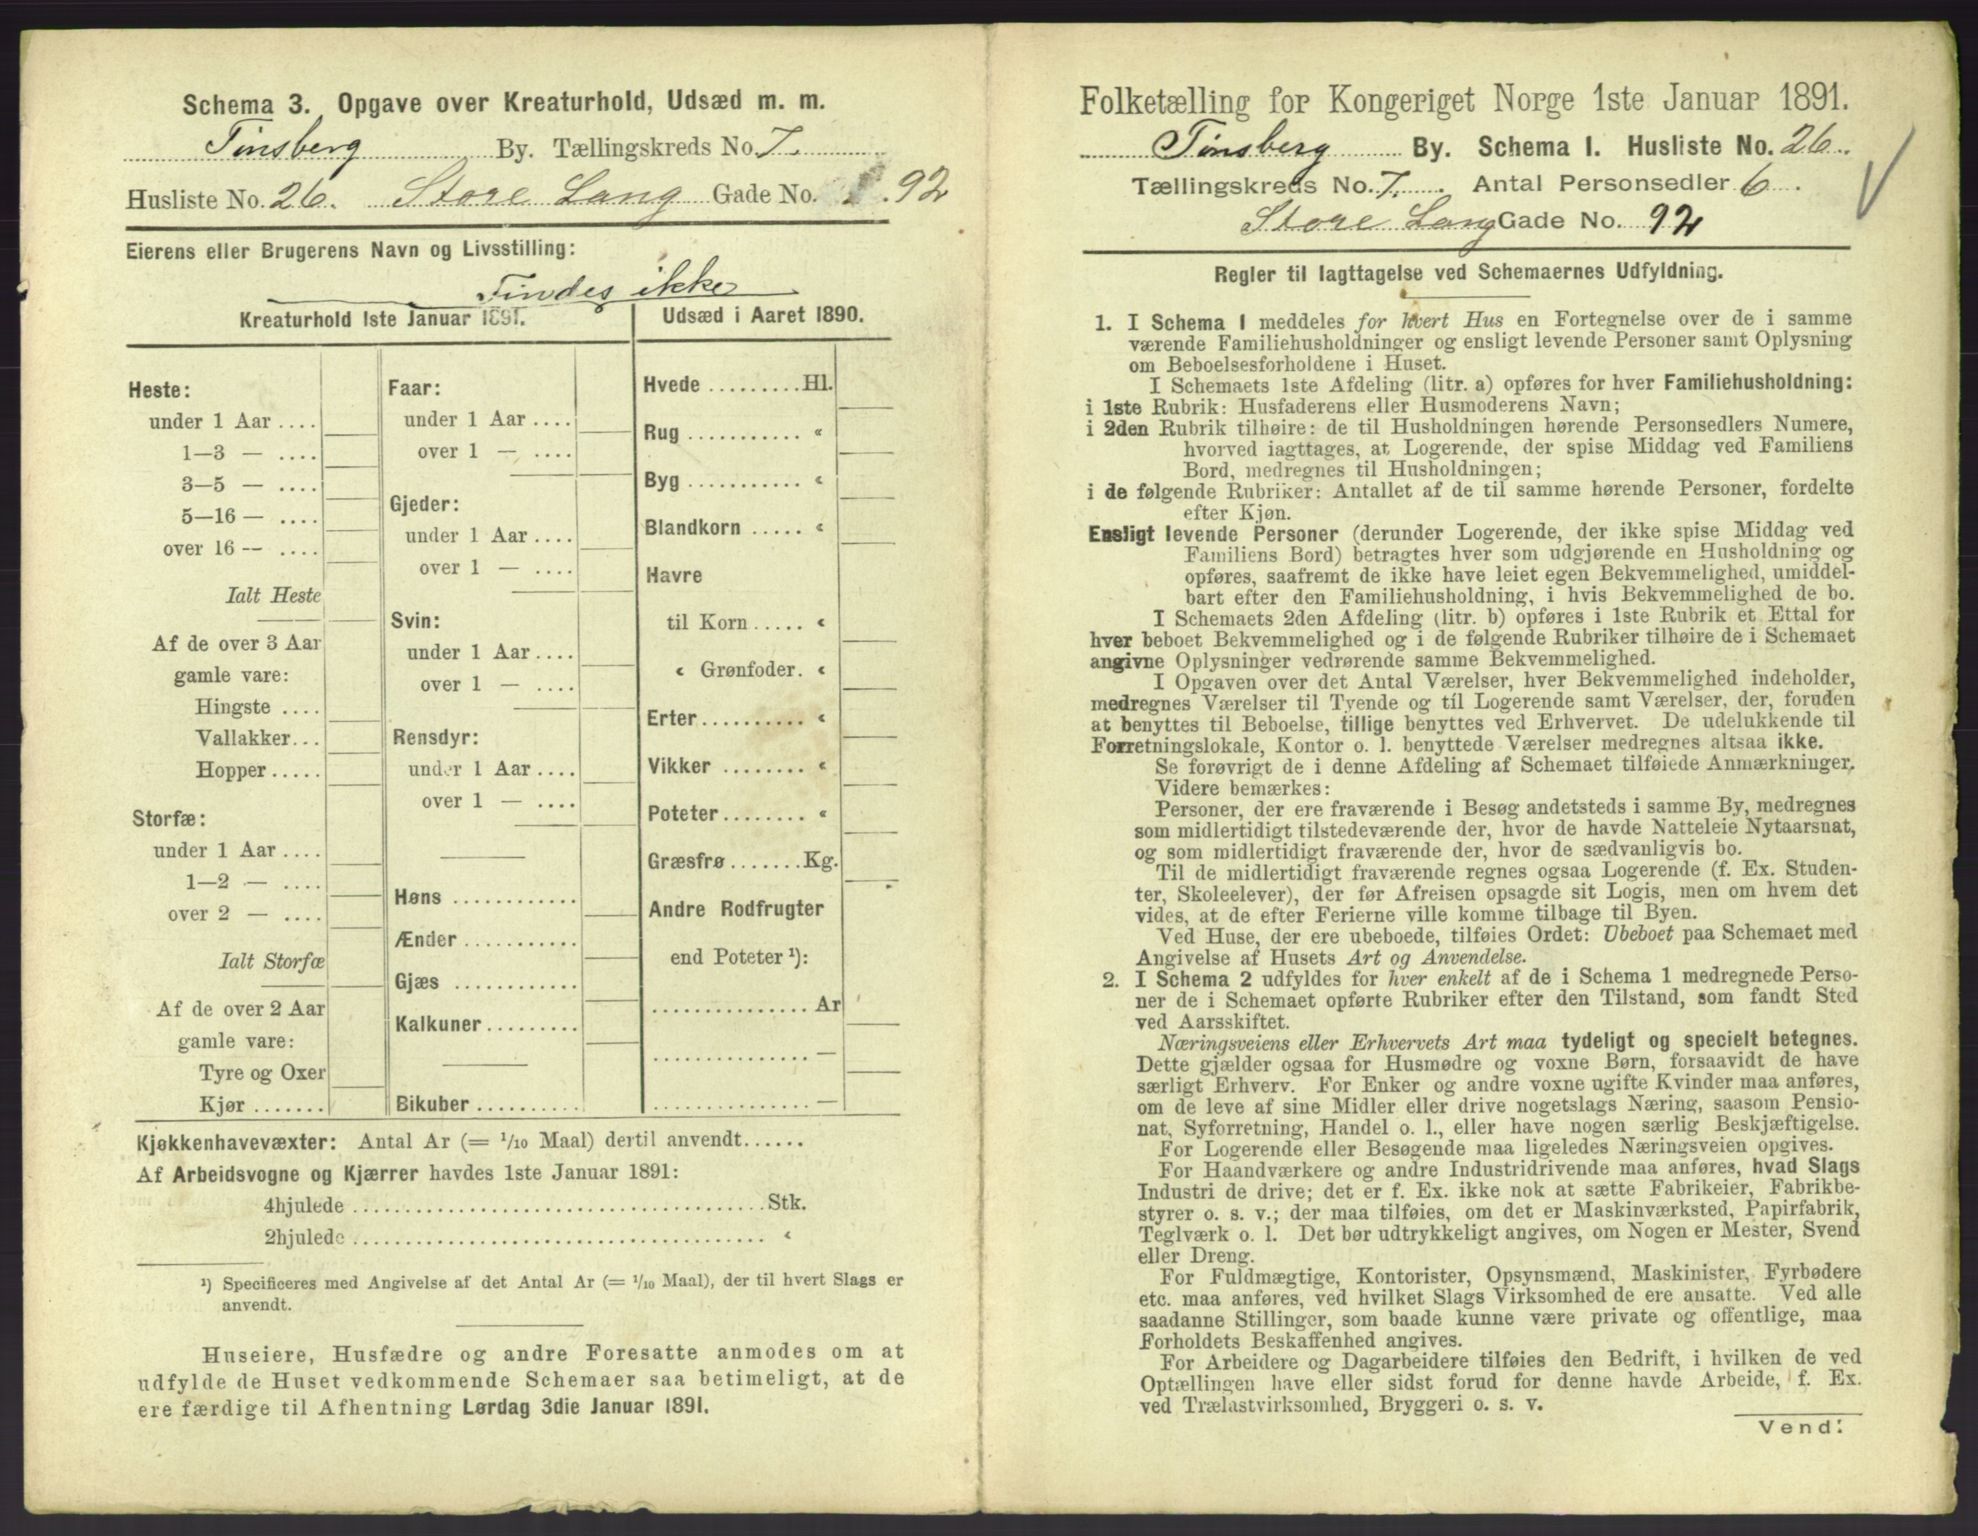 Schema 3. Opgave over Kreaturhold, Udsæd m. m.
Tønsberg By. Tællingskreds No. 7.
Husliste No. 26. Store Lang Gade No. 92
Eierens eller Brugerens Navn og Livsstilling:
Findes ikke
Kreaturhold 1ste Januar 1891.
Heste:
under 1 Aar ....
1—3 — ....
3—5 — ....
5—16 — ....
over 16 — ....
Ialt Heste
Af de over 3 Aar
gamle vare:
Hingste ....
Vallakker...
Hopper.....
Storfæ:
under 1 Aar ....
1—2 — ....
over 2 — ....
Ialt Storfæ
Af de over 2 Aar
gamle vare:
Tyre og Oxer
Kjør .......
Faar:
under 1 Aar ....
over 1 — ....
Gjeder:
under 1 Aar ....
over 1 — ....
Svin:
under 1 Aar ....
over 1 — ....
Rensdyr:
under 1 Aar ....
over 1 — ....
Høns ............
Ænder ...........
Gjæs ............
Kalkuner .........
Bikuber ..........
Udsæd i Aaret 1890.
Hvede ......... Hl.
Rug ........... «
Byg ........... «
Blandkorn ..... «
Havre
til Korn ..... «
« Grønfoder. «
Erter.......... «
Vikker ........ «
Poteter ........ «
Græsfrø ....... Kg.
Andre Rodfrugter
end Poteter ¹):
............... Ar
............... —
............... —
Kjøkkenhavevæxter: Antal Ar (= 1/10 Maal) dertil anvendt......
Af Arbeidsvogne og Kjærrer havdes 1ste Januar 1891:
4hjulede ........................................ Stk.
2hjulede ........................................ «
¹) Specificeres med Angivelse af det Antal Ar (= 1/10 Maal), der til hvert Slags er
anvendt.
Huseiere, Husfædre og andre Foresatte anmodes om at
udfylde de Huset vedkommende Schemaer saa betimeligt, at de
ere færdige til Afhentning Lørdag 3die Januar 1891.
Folketælling for Kongeriget Norge 1ste Januar 1891.
Tønsberg By. Schema 1. Husliste No. 26.
Tællingskreds No. 7. Antal Personsedler 6.
Store Lang Gade No. 92
Regler til Iagttagelse ved Schemaernes Udfyldning.
1. I Schema 1 meddeles for hvert Hus en Fortegnelse over de i samme
værende Familiehusholdninger og ensligt levende Personer samt Oplysning
om Beboelsesforholdene i Huset.
I Schemaets 1ste Afdeling (litr. a) opføres for hver Familiehusholdning:
i 1ste Rubrik: Husfaderens eller Husmoderens Navn;
i 2den Rubrik tilhøire: de til Husholdningen hørende Personsedlers Numere,
hvorved iagttages, at Logerende, der spise Middag ved Familiens
Bord, medregnes til Husholdningen;
i de følgende Rubriker: Antallet af de til samme hørende Personer, fordelte
efter Kjøn.
Ensligt levende Personer (derunder Logerende, der ikke spise Middag ved
Familiens Bord) betragtes hver som udgjørende en Husholdning og
opføres, saafremt de ikke have leiet egen Bekvemmelighed, umiddel-
bart efter den Familiehusholdning, i hvis Bekvemmelighed de bo.
I Schemaets 2den Afdeling (litr. b) opføres i 1ste Rubrik et Ettal for
hver beboet Bekvemmelighed og i de følgende Rubriker tilhøire de i Schemaet
angivne Oplysninger vedrørende samme Bekvemmelighed.
I Opgaven over det Antal Værelser, hver Bekvemmelighed indeholder,
medregnes Værelser til Tyende og til Logerende samt Værelser, der, foruden
at benyttes til Beboelse, tillige benyttes ved Erhvervet. De udelukkende til
Forretningslokale, Kontor o. l. benyttede Værelser medregnes altsaa ikke.
Se forøvrigt de i denne Afdeling af Schemaet tilføiede Anmærkninger.
Videre bemærkes:
Personer, der ere fraværende i Besøg andetsteds i samme By, medregnes
som midlertidigt tilstedeværende der, hvor de havde Natteleie Nytaarsnat,
og som midlertidigt fraværende der, hvor de sædvanligvis bo.
Til de midlertidigt fraværende regnes ogsaa Logerende (f. Ex. Studen-
ter, Skoleelever), der før Afreisen opsagde sit Logis, men om hvem det
vides, at de efter Ferierne ville komme tilbage til Byen.
Ved Huse, der ere ubeboede, tilføies Ordet: Ubeboet paa Schemaet med
Angivelse af Husets Art og Anvendelse.
2. I Schema 2 udfyldes for hver enkelt af de i Schema 1 medregnede Perso-
ner de i Schemaet opførte Rubriker efter den Tilstand, som fandt Sted
ved Aarsskiftet.
Næringsveiens eller Erhvervets Art maa tydeligt og specielt betegnes.
Dette gjælder ogsaa for Husmødre og voxne Børn, forsaavidt de have
særligt Erhverv. For Enker og andre voxne ugifte Kvinder maa anføres,
om de leve af sine Midler eller drive nogetslags Næring, saasom Pensio-
nat, Syforretning, Handel o. l., eller have nogen særlig Beskjæftigelse.
For Logerende eller Besøgende maa ligeledes Næringsveien opgives.
For Haandværkere og andre Industridrivende maa anføres, hvad Slags
Industri de drive; det er f. Ex. ikke nok at sætte Fabrikeier, Fabrikbe-
styrer o. s. v.; der maa tilføies, om det er Maskinværksted, Papirfabrik,
Teglværk o. l. Det bør udtrykkeligt angives, om Nogen er Mester, Svend
eller Dreng.
For Fuldmægtige, Kontorister, Opsynsmænd, Maskinister, Fyrbødere
etc. maa anføres, ved hvilket Slags Virksomhed de ere ansatte. Ved alle
saadanne Stillinger, som baade kunne være private og offentlige, maa
Forholdets Beskaffenhed angives.
For Arbeidere og Dagarbeidere tilføies den Bedrift, i hvilken de ved
Optællingen have eller sidst forud for denne havde Arbeide, f. Ex.
ved Trælastvirksomhed, Bryggeri o. s. v.
Vend: